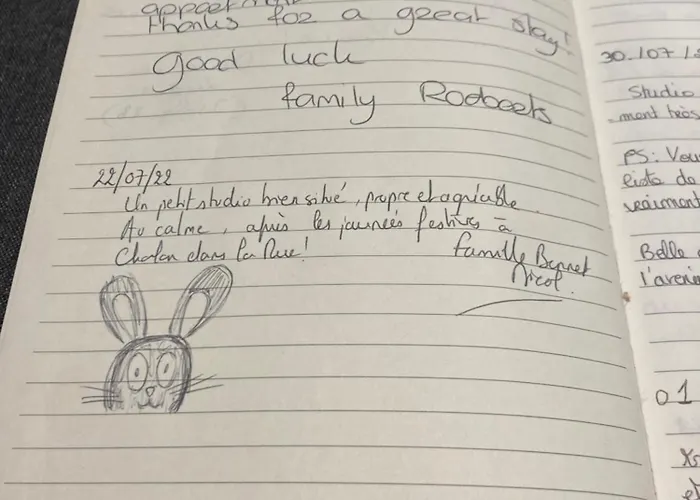 thanks for a great stay!
good luck
family Rodbeets
22/07/22
Un petit studio bien situé, propre et agréable
Au calme, après les journées festives à
Chalon dans la Rue!
famille Bennet
Nicol.
30/07/
Studio
ment très
PS: Vous
liste de
vraiment
Belle
l'aveni
01